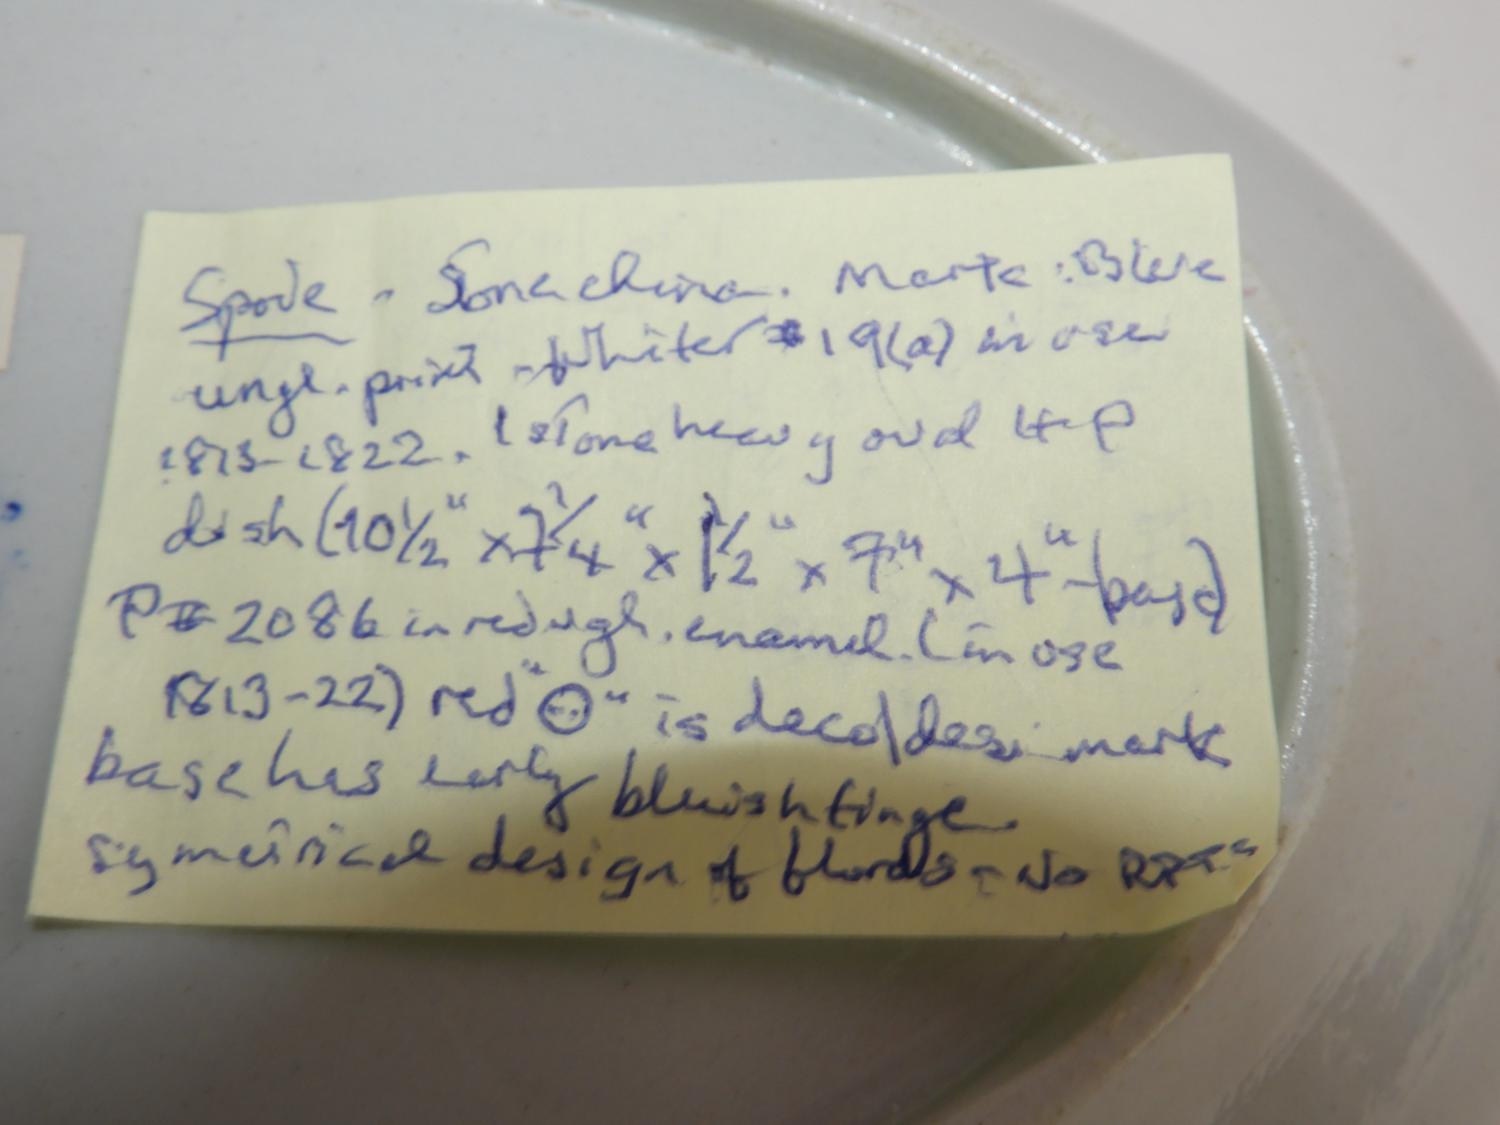 Spode - Stone china. Mark: Blue
ungl. print - Whiter # 19(a) in use
1813-1822. 1 stone heavy oval H-P
dish (10 1/2" x 7 1/4" x 1 1/2" x 7" x 4" - base)
P# 2086 in red ugl. enamel. (in use
1813-22) red "" is deco/desi mark
base has early bluish tinge
symetrical design of - No